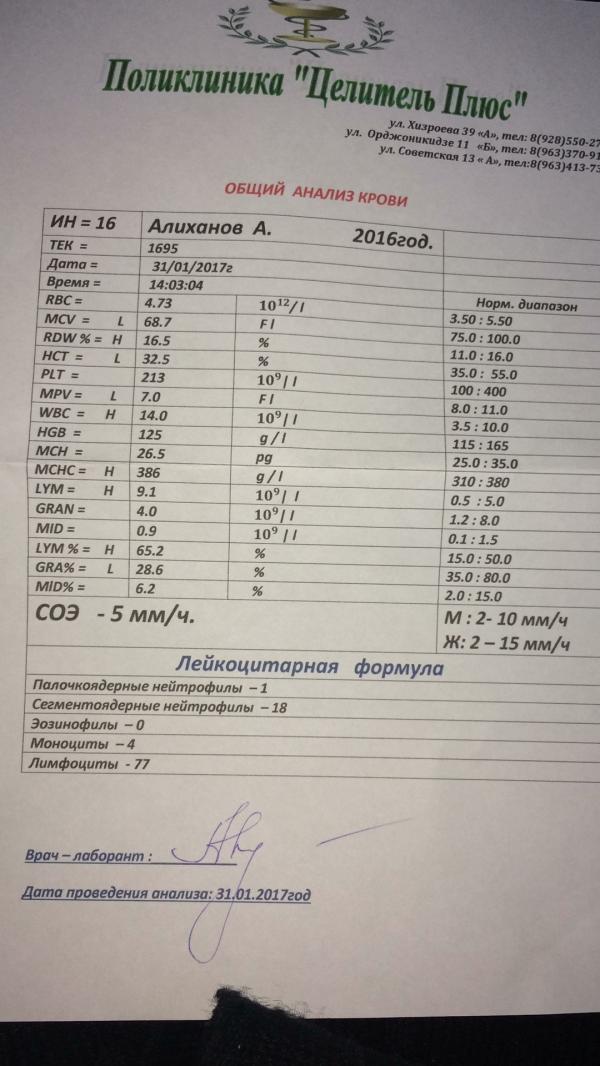 Поликлиника "Целитель Плюс"
ул. Хизроева 39 «А», тел: 8(928)550-27
ул. Орджоникидзе 11 «Б», тел: 8(963)370-91
ул. Советская 13 « А», тел:8(963)413-73
ОБЩИЙ АНАЛИЗ КРОВИ
ИН = 16 Алиханов А. 2016год.
ТЕК = 1695
Дата = 31/01/2017г
Время = 14:03:04 Норм. диапазон
RBC = 4.73 10¹²/l 3.50 : 5.50
MCV = L 68.7 Fl 75.0 : 100.0
RDW % = H 16.5 % 11.0 : 16.0
HCT = L 32.5 % 35.0 : 55.0
PLT = 213 10⁹/l 100 : 400
MPV = L 7.0 Fl 8.0 : 11.0
WBC = H 14.0 10⁹/l 3.5 : 10.0
HGB = 125 g/l 115 : 165
MCH = 26.5 pg 25.0 : 35.0
MCHC = H 386 g/l 310 : 380
LYM = H 9.1 10⁹/l 0.5 : 5.0
GRAN = 4.0 10⁹/l 1.2 : 8.0
MID = 0.9 10⁹/l 0.1 : 1.5
LYM % = H 65.2 % 15.0 : 50.0
GRA% = L 28.6 % 35.0 : 80.0
MID% = 6.2 % 2.0 : 15.0
СОЭ - 5 мм/ч. М : 2- 10 мм/ч
Ж: 2 – 15 мм/ч
Лейкоцитарная формула
Палочкоядерные нейтрофилы – 1
Сегментоядерные нейтрофилы – 18
Эозинофилы – 0
Моноциты – 4
Лимфоциты - 77
Врач – лаборант :
Дата проведения анализа: 31.01.2017год